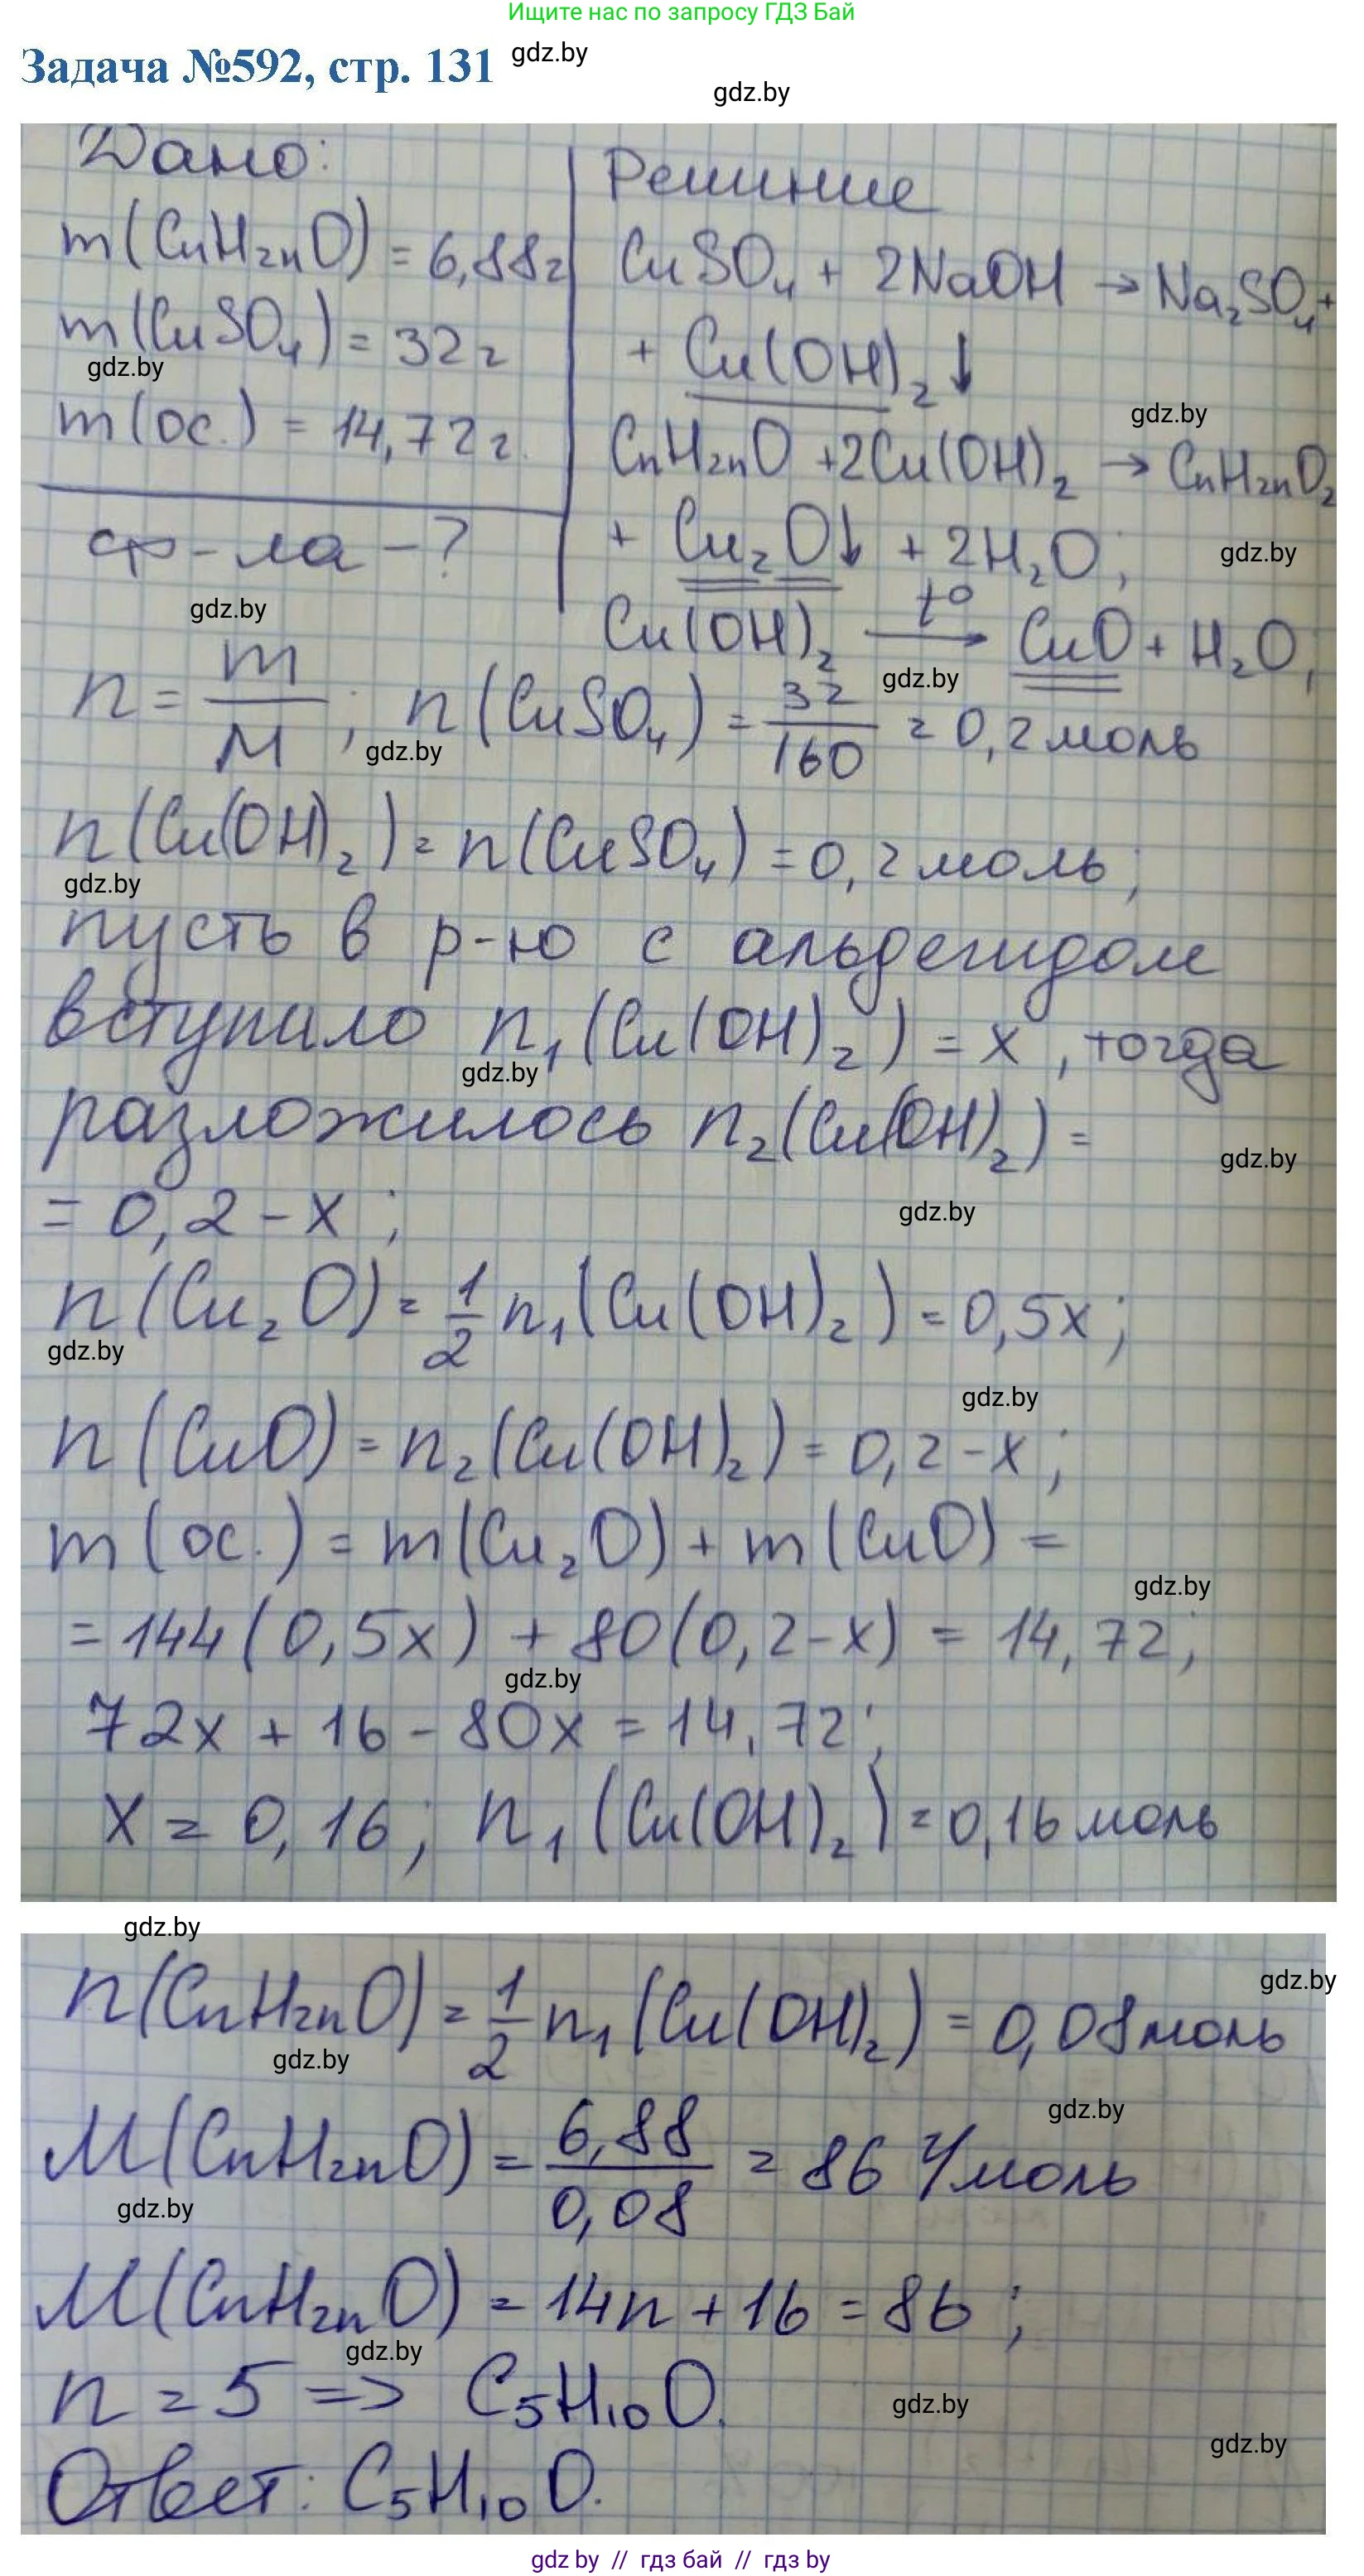 Ищите нас по запросу ГДЗ Бай
Задача №592, стр. 131 gdz.by
gdz.by
Дано:
m(CnH₂nO) = 6,88г
m(CuSO₄) = 32г
gdz.by
m(ос.) = 14,72г.
ф-ла - ?
gdz.by
Решиние
CuSO₄ + 2NaOH → Na₂SO₄ +
+ Cu(OH)₂↓
gdz.by
CnH₂nO + 2Cu(OH)₂ → CnH₂nO₂
+ Cu₂O↓ + 2H₂O;
gdz.by
Cu(OH)₂ —t°→ CuO + H₂O;
gdz.by
n = m/M; n(CuSO₄) = 32/160 = 0,2моль
gdz.by
n(Cu(OH)₂) = n(CuSO₄) = 0,2моль;
gdz.by
пусть в р-ю с альдегидом
вступило n₁(Cu(OH)₂) = x, тогда
gdz.by
разложилось n₂(Cu(OH)₂) =
gdz.by
= 0,2 - x;
gdz.by
n(Cu₂O) = 1/2 n₁(Cu(OH)₂) = 0,5x;
gdz.by
gdz.by
n(CuO) = n₂(Cu(OH)₂) = 0,2 - x;
m(ос.) = m(Cu₂O) + m(CuO) =
gdz.by
= 144(0,5x) + 80(0,2-x) = 14,72;
gdz.by
72x + 16 - 80x = 14,72;
x = 0,16; n₁(Cu(OH)₂) = 0,16моль
gdz.by
gdz.by
n(CnH₂nO) = 1/2 n₁(Cu(OH)₂) = 0,08моль
gdz.by
gdz.by
M(CnH₂nO) = 6,88/0,08 = 86 г/моль
gdz.by
M(CnH₂nO) = 14n + 16 = 86;
gdz.by
n = 5 => C₅H₁₀O.
gdz.by
gdz.by
Ответ: C₅H₁₀O.
gdz by // гдз бай // гдз by